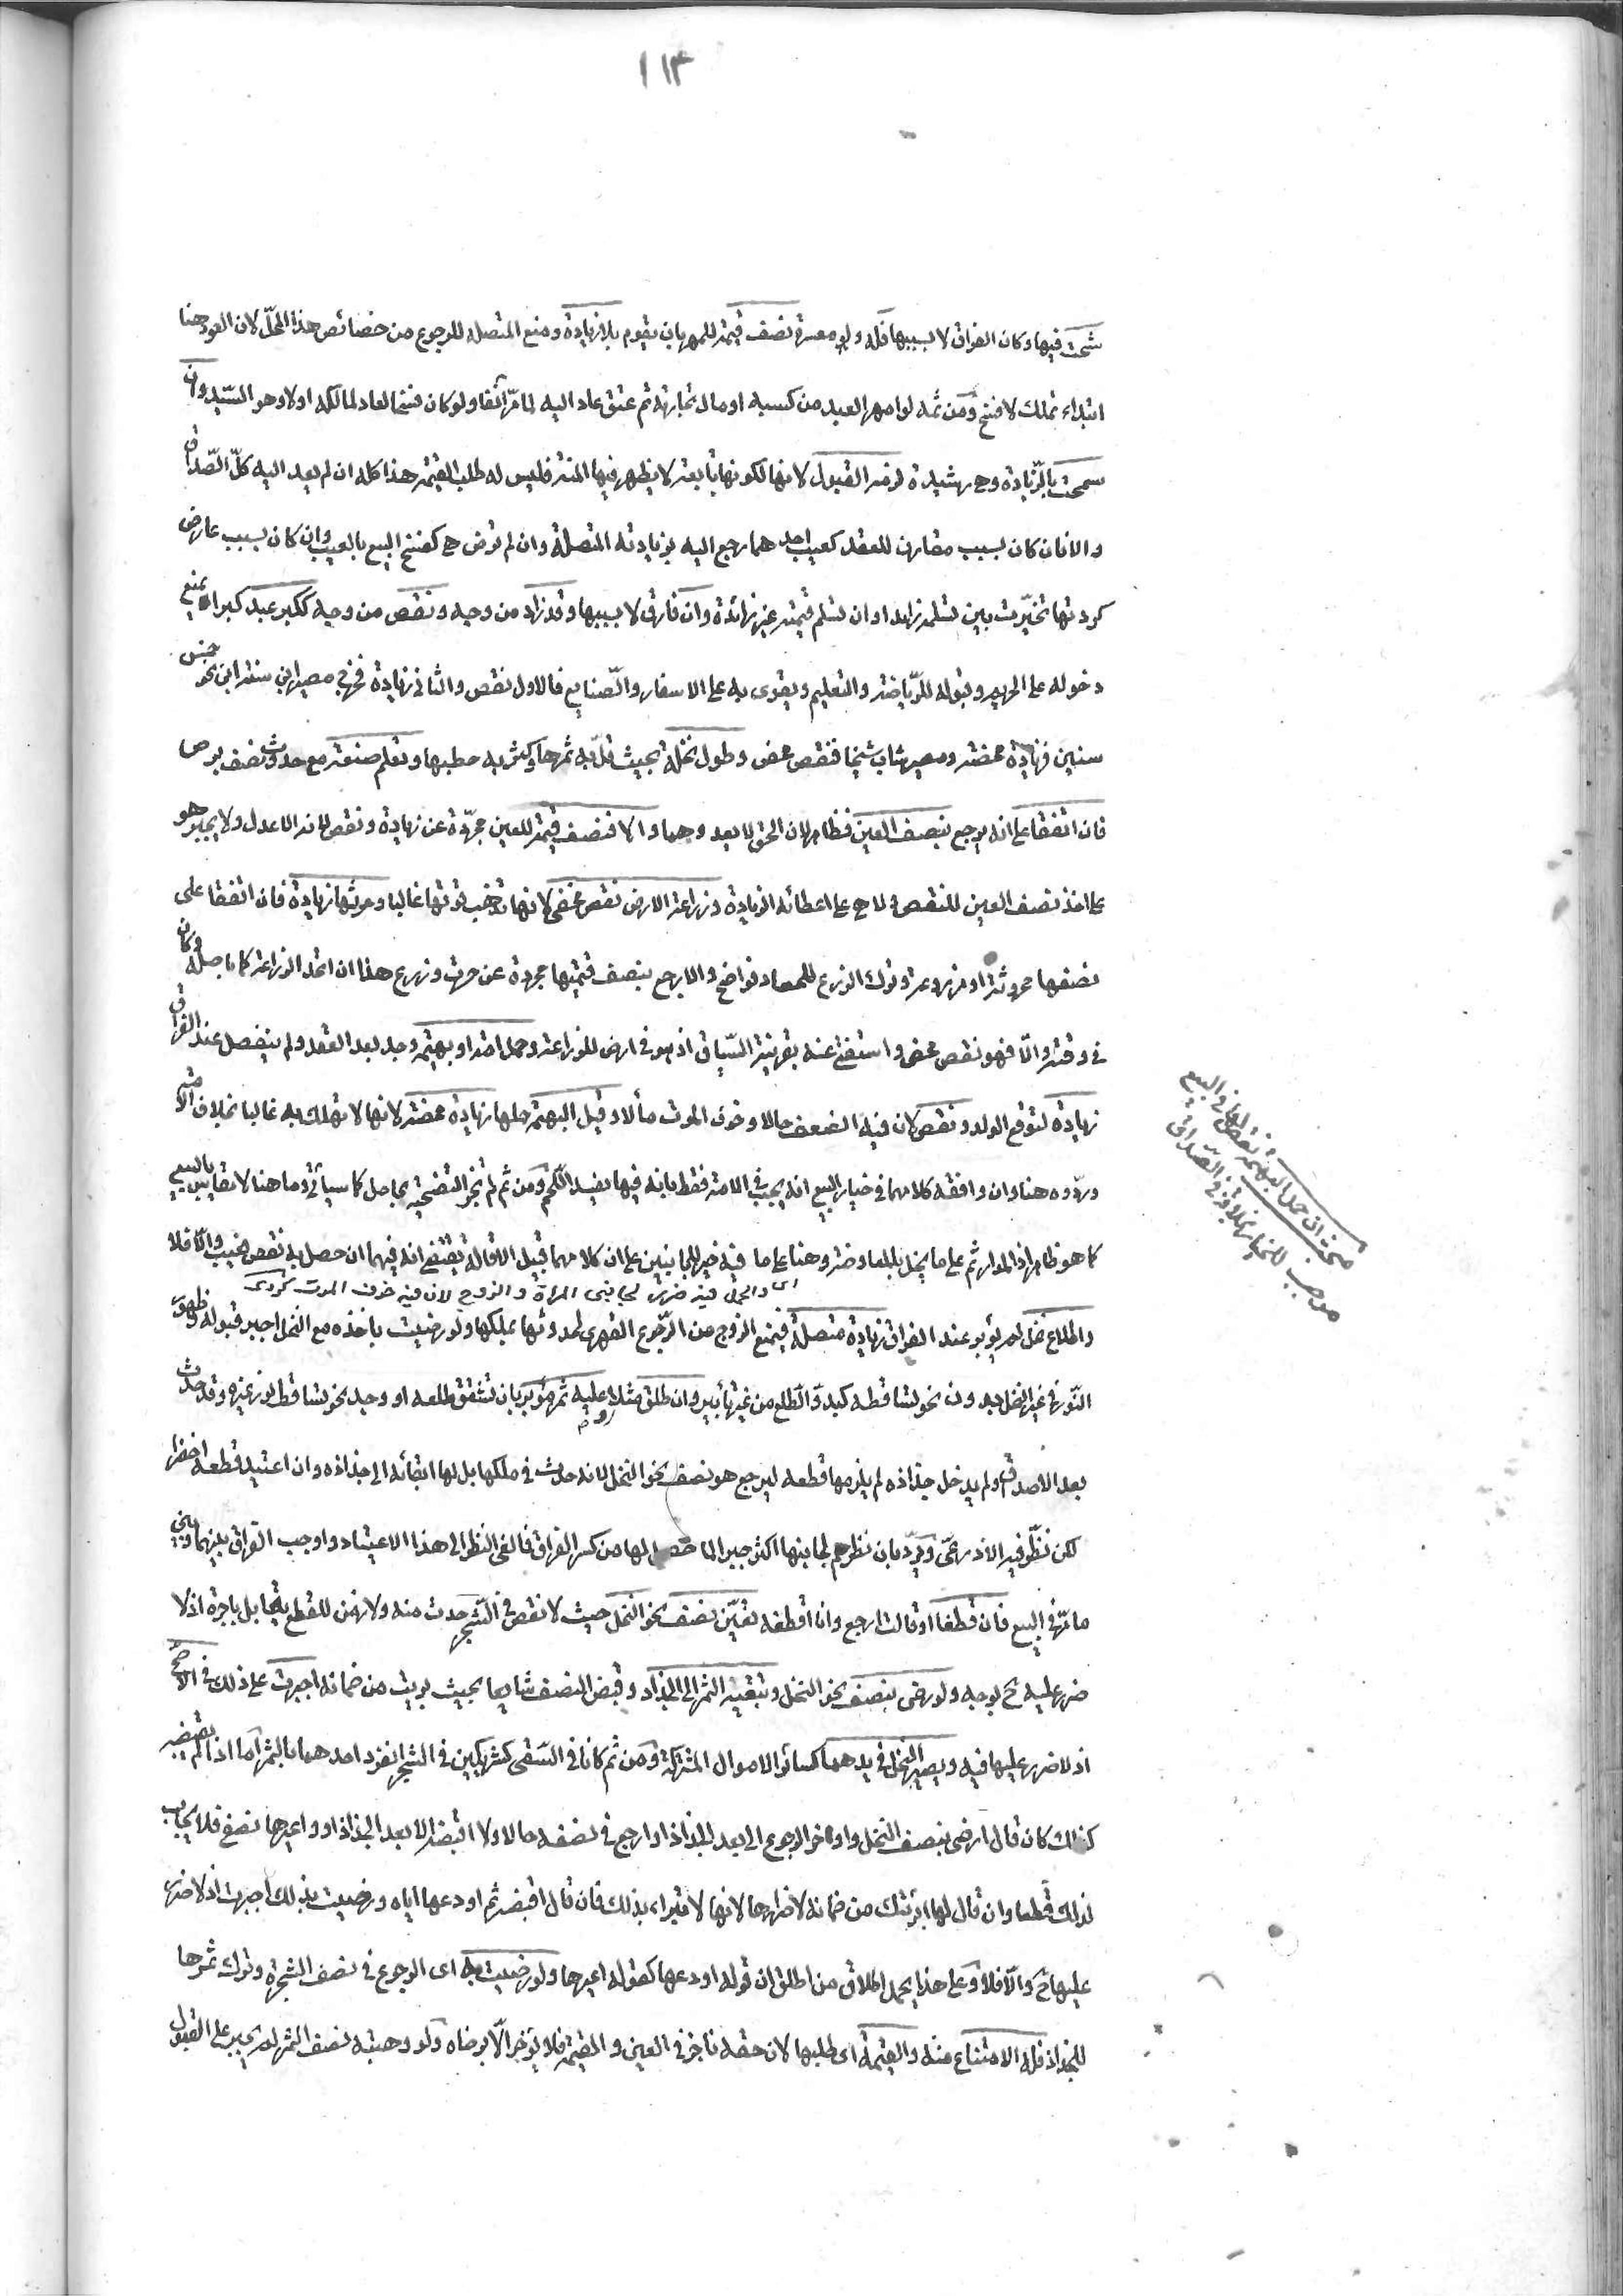 ١١٣
شحت فيها وكان الفراق لا بسببها فله ولو معسرة نصف قيمة للمهر بان يقوم بلا زيادة ومنع المتصلة للرجوع من خصائص هذا المحلّ لان العود هنا
ابتداء تملك لا فسخ ومن ثمه لو امهر العبد من كسبه او مال تجارته ثم عتق عاد اليه لما مرّ آنفا ولو كان فسخا لعاد لمالكه اولا وهو السّيد وان
سمحت بالزّيادة وهى رشيدة لزمه القبول لانها لكونها تابعة لا يظهر فيها المنة فليس له طلب القيمة هذا كله ان لم يعد اليه كلّ الصّداق
والا فان كان بسبب مقارن للعقد كعيب احدهما رجع اليه بزيادته المتصلة وان لم ترض هى كفسخ البيع بالعيب وان كان بسبب عارض
كردتها تخيّرت بين تسلمه زايدا وان تسلم قيمته غير زائدة وان فارق لا بسببها وقد زاد من وجه ونقص من وجه ككبر عبد كبرا يمنع
دخوله على الحريم وقبوله للرّياضة والتعليم ويقوى به على الاسفار والصّنايع فالاول نقص والثانى زيادة فخرج مصير ابن سنة ابن نحو خمس
سنين فزيادة محضة ومصير شاب شيخا فنقص محض وطول نخلة بحيث قلّ به ثمرها وكثر به حطبها وتعلم صنعة مع حدوث نصف برص
فان اتفقا على انه يرجع بنصف العين فظاهر لان الحق لا يعدوهما والا فنصف قيمة للعين مجرّدة عن زيادة ونقص لانه الاعدل ولا يجبر هو
على اخذ نصف العين للنقص ولا هى على اعطائه الزيادة وزراعة الارض نقص محض لانها تذهب قوتها غالبا وحرثها زيادة فان اتفقا على
نصفها محروثة او مزروعة وترك الزرع للحصاد فواضح والا رجع بنصف قيمتها مجردة عن حرث وزرع هذا ان اتخذ الزراعة كما باصله وكان
فى وقته والّا فهو نقص محض واستغنى عنه بقرينة السّياق اذ هو فى ارض للزراعة وحمل امة او بهيمة وجد بعد العقد ولم ينفصل عند الفراق
زيادة لتوقع الولد ونقص لان فيه الضعف حالا وخوف الموت مآلا وقيل البهيمة حملها زيادة محضة لانها لا تهلك به غالبا بخلاف الامة
وردّوه هنا وان وافقه كلامهما فى خيار البيع انه يعيب فى الامة فقط بانه فيها يفسد اللّحم ومن ثم لم تجز التضحية بحامل كما سيأتى وما هنا لا يقاس بالبيع
كما هو ظاهر اذ المدار ثم على ما يخل بالمعاوضة وهنا على ما فيه خير للجانبين على ان كلامهما قبيل الاقالة يقتضى انه فيهما ان حصل به نقص عيب والّا فلا
اى والحمل فيه ضرر لجانبى المرأة والزوج لان فيه خوف الموت كردى
واطلاع نخل لم يؤبر عند الفراق زيادة متصلة فيمنع الزوج من الرّجوع القهرى لحدوثها بملكها ولو رضيت باخذه مع النخل اجبر قبوله وظهور
النّور فى غير النخل بدون نحو تساقطه كبدوّ الطّلع من غير تأبير وان طلق مثلا وعليه ثمر مؤبر بان تشقق طلعه او وجد نحو تساقط نور غيره وقد حدث
بعد الاصداق ولم يدخل جذاذه لم يلزمها قطعه ليرجع هو نصف نحو النخل لانه حدث فى ملكها بل لها ابقائه الى جذاذه وان اعتيد قطعه اخضر
لكن نظّر فيه الاذرعىّ ويردّ بان نظرهم لجانبها اكثر جبرا لما حصل لها من كسر الفراق فالغى النظر الى هذا الاعتياد واوجب الفراق بينهما وبين
ما مرّ فى البيع فان قطفا او قالت ارجع وانا اقطفه تعيّن نصف نحو النخل حيث لا نقص فى الشّجر حدث منه ولا زمن للقطع يقابل باجرة اذ لا
ضرر عليه ح بوجه ولو رضى بنصف نحو النخل وتبقية الثمر الى الجذاذ وقبض النصف شايعا بحيث بريت من ضمانه اجبرت على ذلك فى الاصحّ
اذ لا ضرر عليها فيه ويصير النخل فى يدهما كسائر الاموال المشتركة ومن ثم كانا فى السّقى كشريكين فى الشجر انفرد احدهما بالثمر اما اذا لم يقبضه
كذلك كان قال ارضى بنصف النخل واوخر الرجوع الى بعد الجذاذ او ارجع فى نصفه حالا ولا اقبضه الا بعد الجذاذ او واعيرها نصفى فلا يجاب
لذلك قطعا وان قال لها ابرئتك من ضمانه لاضرارها لانها لا تبراء بذلك فان قال اقبضه ثم اودعها اياه ورضيت بذلك اجبرت اذ لا ضرر
عليها ح والّا فلا وعلى هذا يحمل اطلاق من اطلق ان قوله اودعها كقوله اعيرها ولو رضيت به اى الرجوع فى نصف الشجرة وترك ثمرها
للجذاذ فله الامتناع منه والقيمة اى طلبها لان حقه ناجز فى العين والقيمة فلا يؤخر الّا برضاه ولو وهبته نصف الثمر لم يجبر على القبول
مبحث ان حمل البهيمة نقص لها فى البيع
موجب للخيار بخلافه فى الصّداق